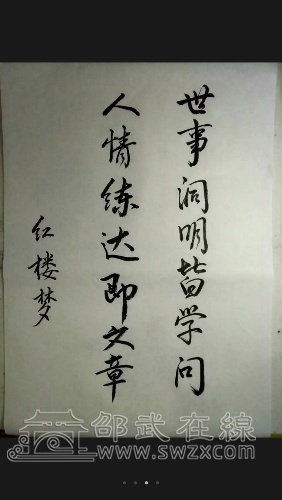 世事洞明皆学问
人情练达即文章
红楼梦
邵武在線
www.swzx.com